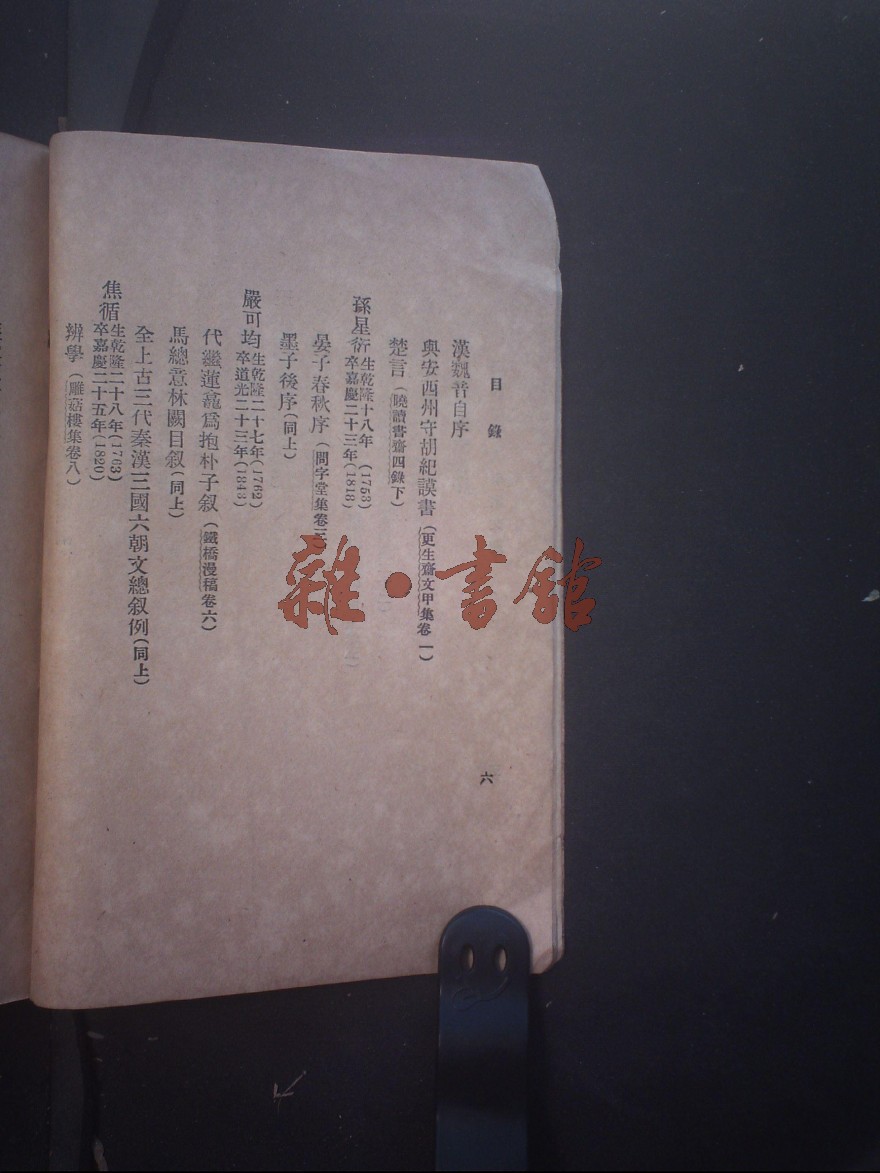 目錄
漢魏音自序
與安西州守胡紀謨書（更生齋文甲集卷一）
楚言（曉讀書齋四錄下）
孫星衍 生乾隆十八年（1753）
卒嘉慶二十三年（1818）
晏子春秋序（問字堂集卷三）
墨子後序（同上）
嚴可均 生乾隆二十七年（1762）
卒道光二十三年（1843）
代繼蓮龕爲抱朴子叙（鐵橋漫稿卷六）
馬總意林闕目叙（同上）
全上古三代秦漢三國六朝文總叙例（同上）
焦循 生乾隆二十八年（1763）
卒嘉慶二十五年（1820）
辨學（雕菰樓集卷八）
六
雜·書館